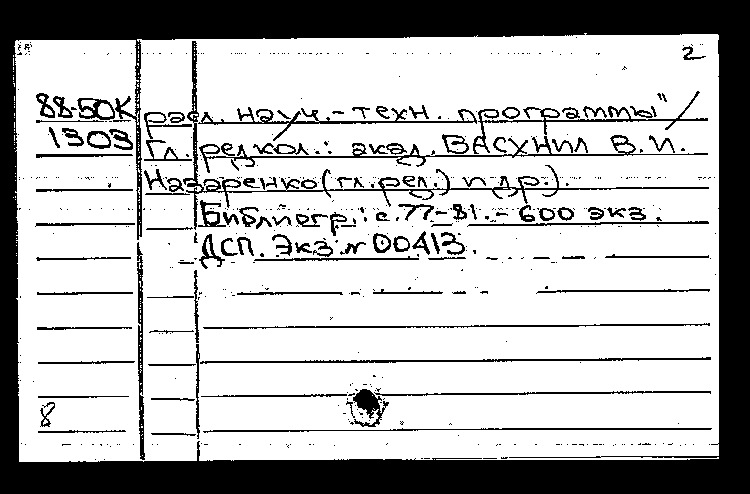 2
88-50К расл. науч.-техн. программы"/
1303 Гл. редкол.: акад. ВАСХНИЛ В.И.
Назаренко (гл. ред.) и др.).
Библиогр.: с. 77-81. - 600 экз.
ДСП. Экз. № 00413.
8